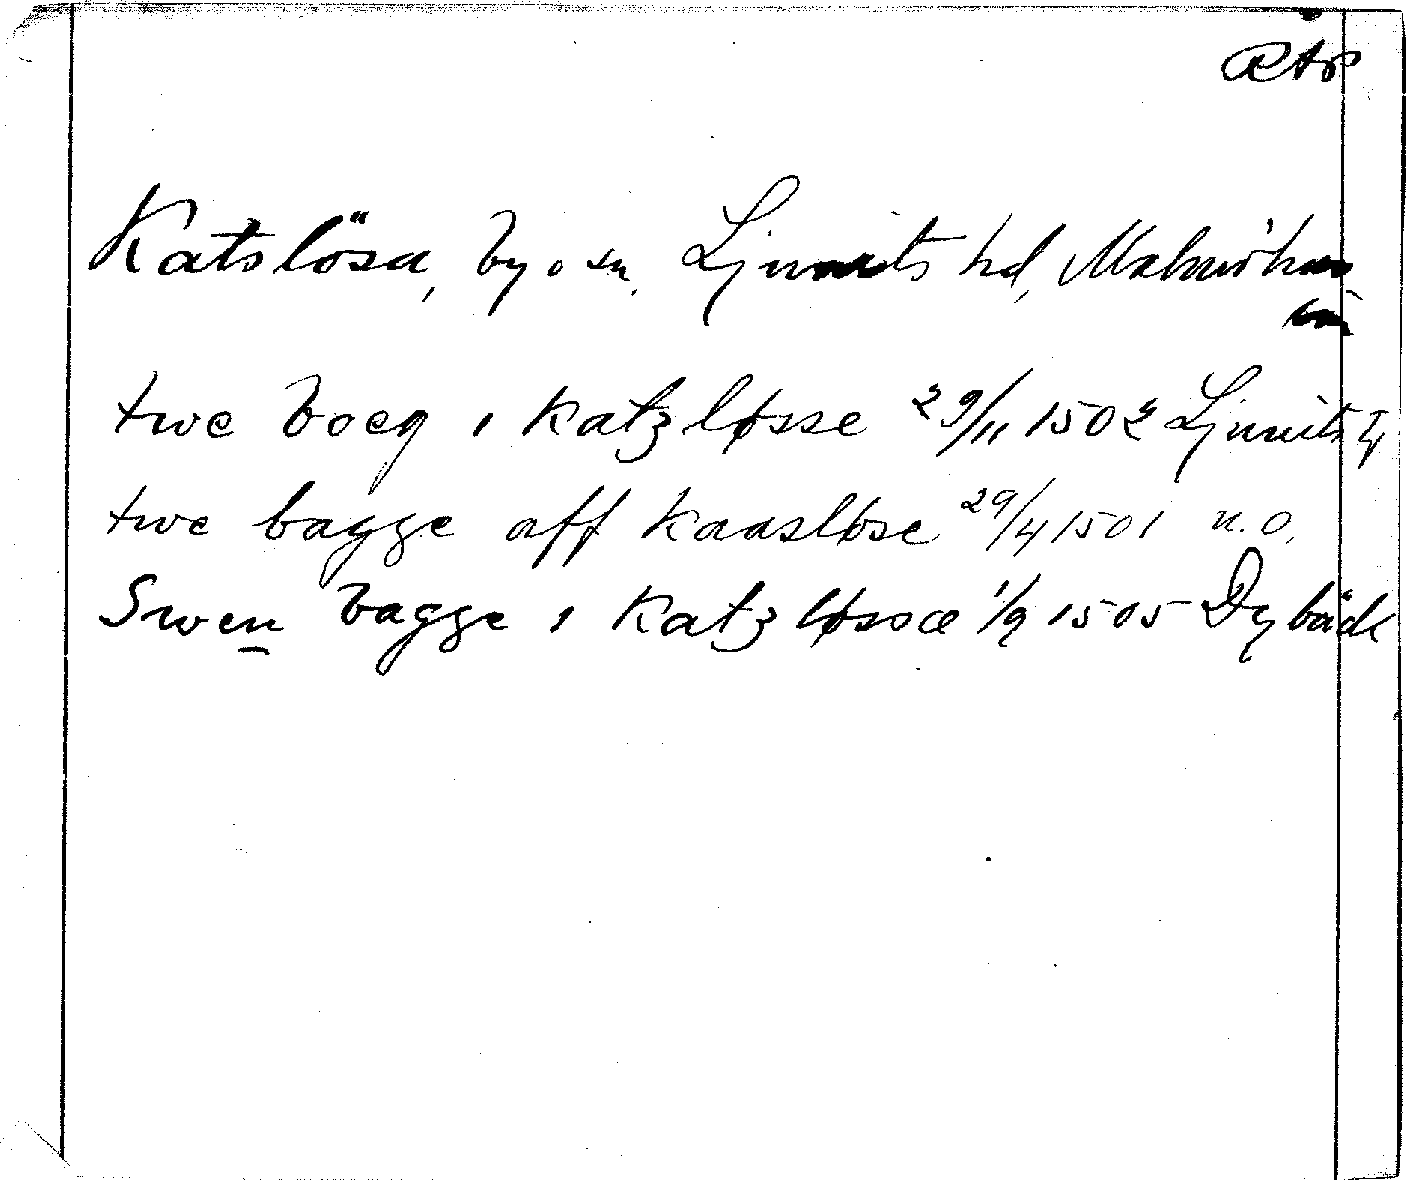 Katslösa, by o sn, Ljunits hd, Malmöhus
län
twe boeg i katzløsse 29/11 1502 Ljunits
twe bagge aff kaasløse 29/4 1501 n.o.
Swen bagge i Katzløssæ 1/9 1505 Dybäck